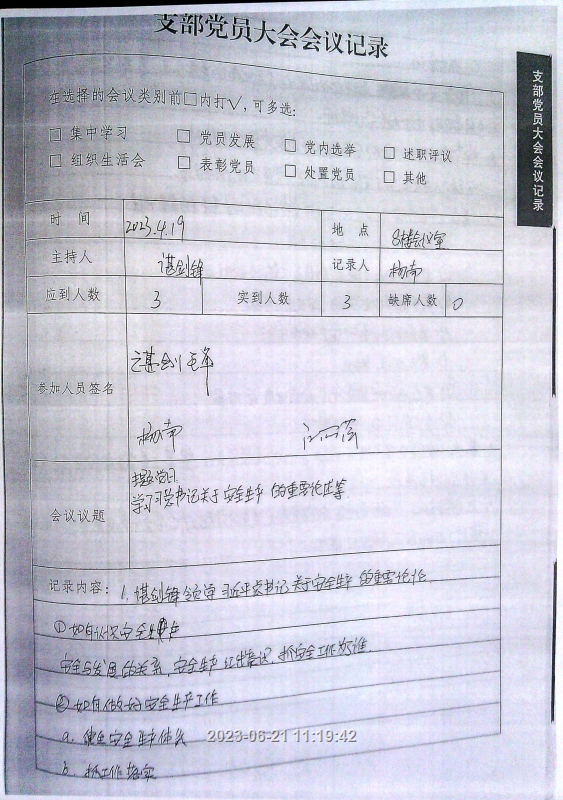 支部党员大会会议记录
支部党员大会会议记录
在选择的会议类别前□内打√,可多选:
□ 集中学习 □ 党员发展 □ 党内选举 □ 述职评议
□ 组织生活会 □ 表彰党员 □ 处置党员 □ 其他
时 间 2023.4.19 地 点 8楼会议室
主持人 谌剑锋 记录人 杨南
应到人数 3 实到人数 3 缺席人数 0
参加人员签名 谌剑锋
杨南
会议议题 主题党日
学习习总书记关于安全生产的重要论述等
记录内容: 1.谌剑锋领学习近平总书记关于安全生产的重要论述
①如何认识安全生产
安全与发展的关系,安全生产红线意识,抓安全工作
②如何做好安全生产工作
a. 安全生产体系
b. 抓工作落实
2023-06-21 11:19:42